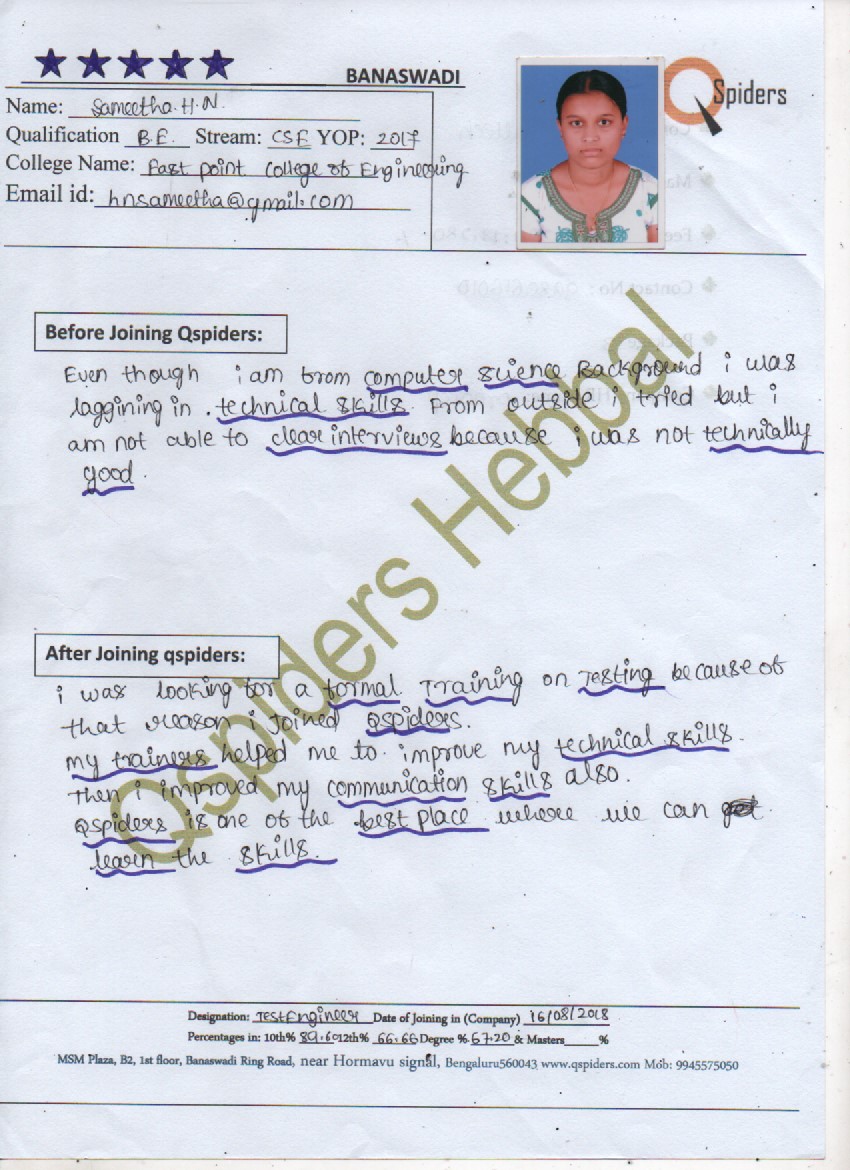 BANASWADI
QSpiders
Name: Sameetha.H.N.
Qualification B.E. Stream: CSE YOP: 2017
College Name: East point College of Engineering
Email id: hnsameetha@gmail.com
Before Joining Qspiders:
Even though i am from computer science Background i was
laggining in . technical skills. From outside i tried but i
am not able to clear interviews because i was not technically
good.
Qspiders Hebbal
After Joining qspiders:
i was looking for a formal Training on Testing because of
that reason i joined Qspiders.
my trainers helped me to improve my technical skills.
Then i improved my communication skills also.
Qspiders is one of the best place where we can get
learn the skills.
Designation: TestEngineer Date of Joining in (Company) 16/08/2018
Percentages in: 10th% 89.60 12th% 66.66 Degree % 67.20 & Masters______%
MSM Plaza, B2, 1st floor, Banaswadi Ring Road, near Hormavu signal, Bengaluru560043 www.qspiders.com Mob: 9945575050